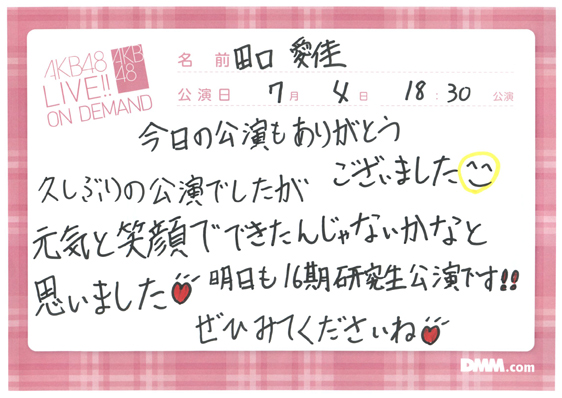 AKB48
LIVE!!
ON DEMAND
AKB
48
名前 田口 愛佳
公演日 7月 4日 18:30 公演
今日の公演もありがとう
ございました
久しぶりの公演でしたが
元気と笑顔でできたんじゃないかなと
思いました
明日も16期研究生公演です!!
ぜひみてくださいね
DMM.com